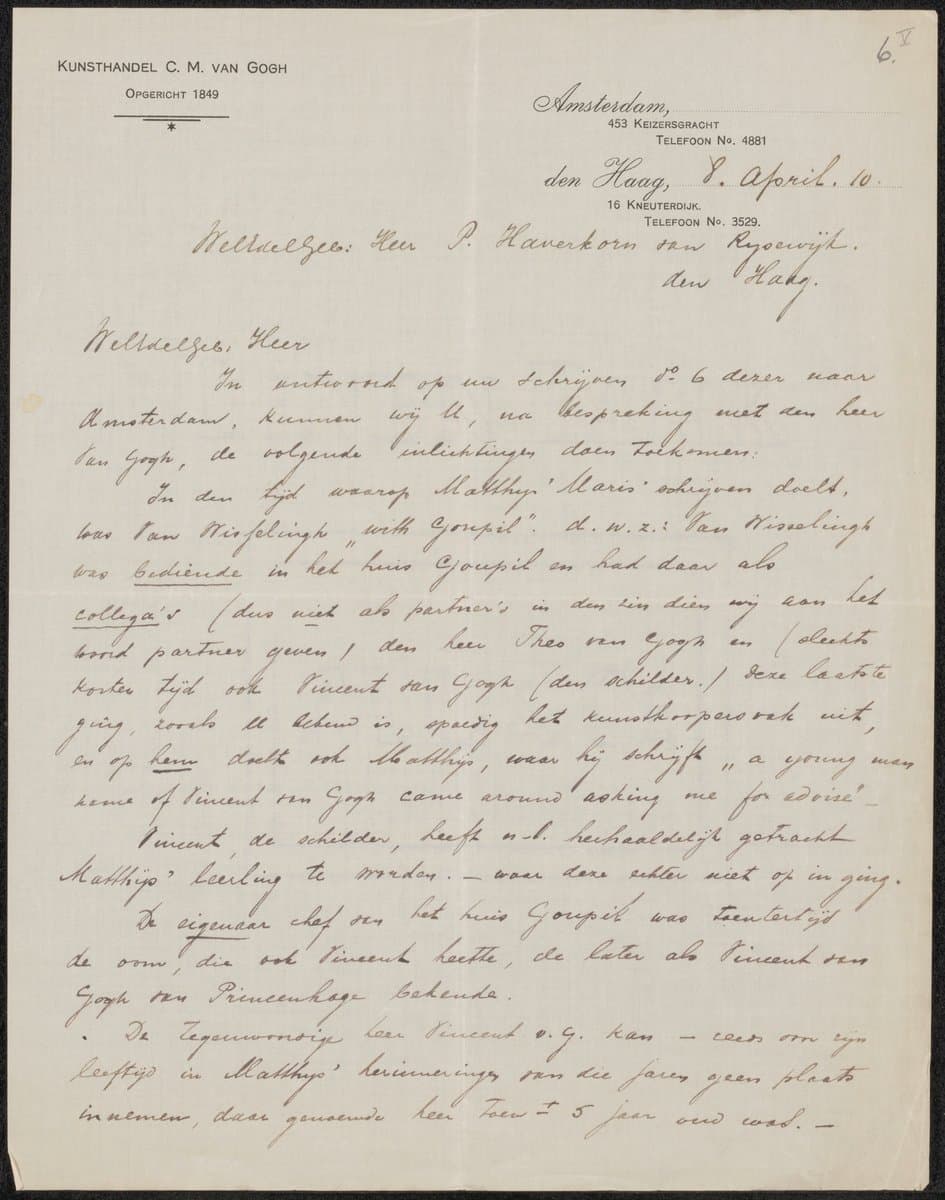 6. V
KUNSTHANDEL C. M. VAN GOGH
OPGERICHT 1849
Amsterdam,
453 KEIZERSGRACHT
TELEFOON No. 4881
den Haag, 8. April. 10.
16 KNEUTERDIJK.
TELEFOON No. 3529.
WelEdelGeb: Heer P. Haverkorn van Rysewijk.
den Haag.
WelEdelGeb. Heer
In antwoord op uw schrijven do 6 dezer naar
Amsterdam, kunnen wij U, na bespreking met den heer
Van Gogh, de volgende inlichtingen doen toekomen:
In den tijd waarop Matthijs' Maris' schrijven doelt,
was Van Wisselingh „with Goupil". d.w.z.: Van Wisselingh
was bediende in het huis Goupil en had daar als
collega's (dus niet als partner's in den zin dien wij aan het
woord partner geven) den heer Theo van Gogh en (slechts
korten tijd ook Vincent van Gogh (den schilder.) Deze laatste
ging, zooals U bekend is, spoedig het kunstkoopersvak uit,
en op hem doelt ook Matthijs, waar hij schrijft „a young man
name of Vincent van Gogh came around asking me for advise" –
Vincent, de schilder, heeft n-l. herhaaldelijk getracht
Matthijs' leerling te worden. – waar deze echter niet op in ging.
De eigenaar chef van het huis Goupil was toentertijd
de oom, die ook Vincent heette, de later als Vincent van
Gogh van Princenhage bekende.
De tegenwoordige heer Vincent v. G. kan – reeds om zijn
leeftijd in Matthijs' herinneringen van die jaren geen plaats
innemen, daar genoemde heer toen ± 5 jaar oud was. –